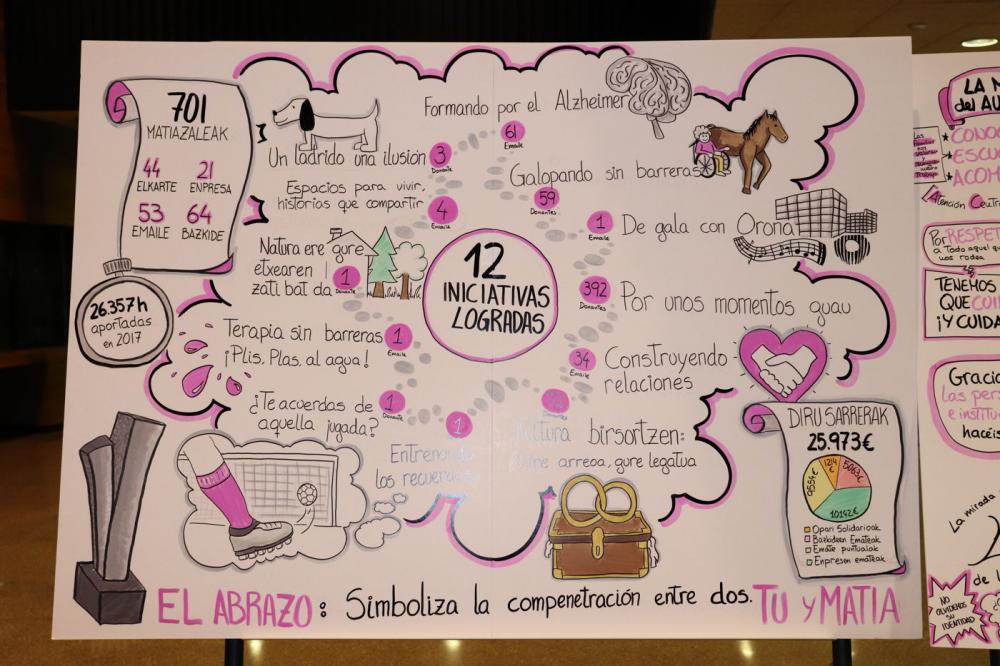 701
MATIAZALEAK
44
ELKARTE
21
ENPRESA
53
EMAILE
64
BAZKIDE
26.357h
aportadas
en 2017
Un ladrido una ilusión
3
Donante
Espacios para vivir,
historias que compartir
4
Emaile
Natura ere gure
etxearen
zati bat da
1
Donante
Terapia sin barreras
¡Plis, Plas, al agua!
1
Emaile
¿Te acuerdas de
aquella jugada?
1
Donante
Entrenando
los recuerdos
1
Formando por el Alzheimer
61
Emaile
Galopando sin barreras
59
Donantes
De gala con Orona
1
Emaile
Por unos momentos guau
392
Donantes
Construyendo
relaciones
34
Emaile
Kultura birsortzen:
arreoa, gure legatua
12
INICIATIVAS
LOGRADAS
DIRU SARRERAK
25.973€
9554€
1214€
5063€
10142€
Opari Solidarioak
Bazkideen Emateak
Emate puntualak
Enpresen emateak
EL ABRAZO: Simboliza la compenetración entre dos. TU y MATIA
LA
del AU
Atención Centr
Por RESPET
a Todo aquel que
nos rodea
TENEMOS
QUE CUI
¡Y CUIDA
Gracia
las pers
e institu
hacéis
La mirada
de l
NO
OLVIDEMOS
SU
IDENTIDAD